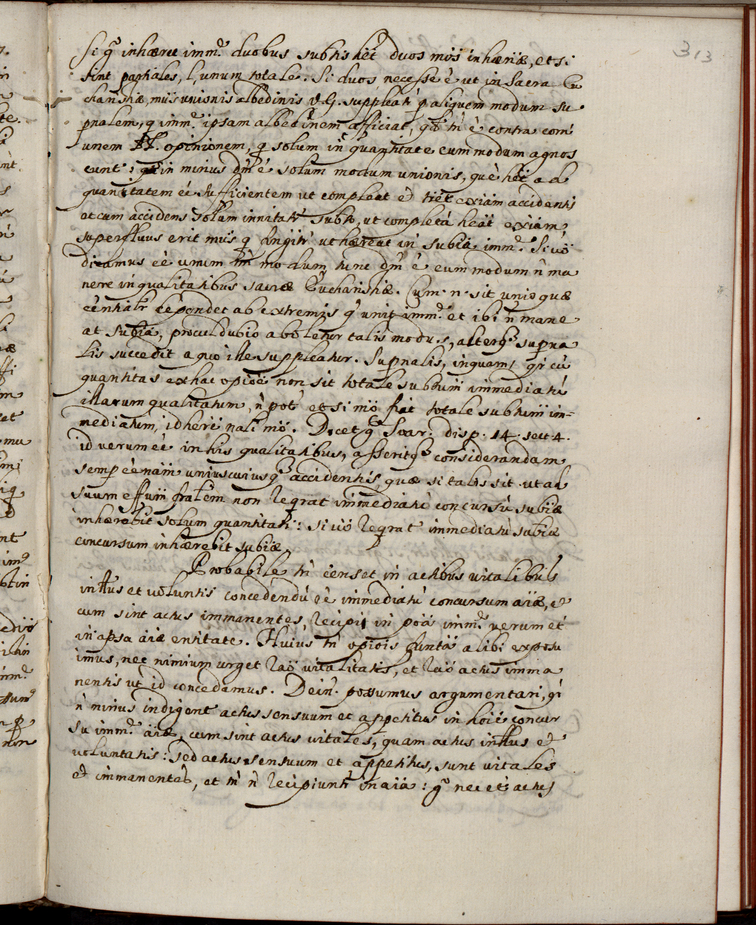 313
Si q̃ inhæret imm.ᵉ duobus subtis hẽt duos mõs inhæriæ, et si
sint partiales, l, unum totale. Si duos necesse ẽ ut in sacra Eu
charistia, mũs unionis albedinis v. G. suppleatr p aliquem modum su
pralem, q imm.ᵉ ipsam albedinem afficiat, qđ tñ ẽ contra com̃
unem opinionem, q̃ solum in quantitate eum modum agnos
cunt:
quantitatem ẽẽ sufficientem ut compleat
et cum accidens solum innitatr subto, ut completã heãt exiam,
superfluus erit mũs q fingitr ut hæreat in subiã imm.ᵉ Si võ
dicamus ẽẽ unum tm̃ modum, tunc dm̃ ẽ eum modum ñ ma
nere in qualitatibus sacræ Eucharistiæ. Cum .n. sit unio quæ
ẽẽntialr dependet ab extremis q unit imm.ᵉ et ibi ñ mane
at subiã, procul dubio aboletur talis modus, alterq̃ supna
lis succedit a quo ille suppleatur. Supnalis, inquam, qr cũ
quantitas ex hac opiõẽ non sit totale subtum immediatũ
illarum qualitatum, ñ pot̃ et si mõ fiat totale subtum im-
mediatum, id heri nali mõ. Docet q̃ Soar. disp. 14. sect. 4.
id verum ẽẽ in his qualitatibus, asseritq̃ considerandam
semp ẽẽ nam̃ uniuscuiusq̃ accidentis, quæ si talis sit ut ad
suum effum fralem non reqrat immediatũ concursũ subiæ
inhærebit solum quantitati: si võ reqrat immediatũ subiæ
concursum inhærebit subiæ.
Probabile tñ censet in actibus vitalibus
inttus et voluntis concedendũ ẽẽ immediatũ concursum aiæ, et
cum sint actus immanentes, recipi in poã imm.ᵉ verum et
in ipsa aiæ entitate. Huius tñ opiõis funta alibi exposu
imus, nec nimium urget raõ vitalitatis, et raõ actus imma
nentis ut id concedamus. Dein possumus argumentari, qr
ñ minus indigent actus sensuum et appetitus in hoiẽ concur
su imm.ᵉ aiæ, cum sint actus vitales, quam actus inttus et
voluntatis: sed actus sensuum et appetitus, sunt vitales
et immanentes, et tñ ñ recipiuntr in aia: q̃ nec et actus